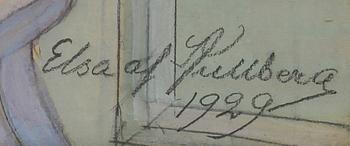 Elsa af Hillberg
1929